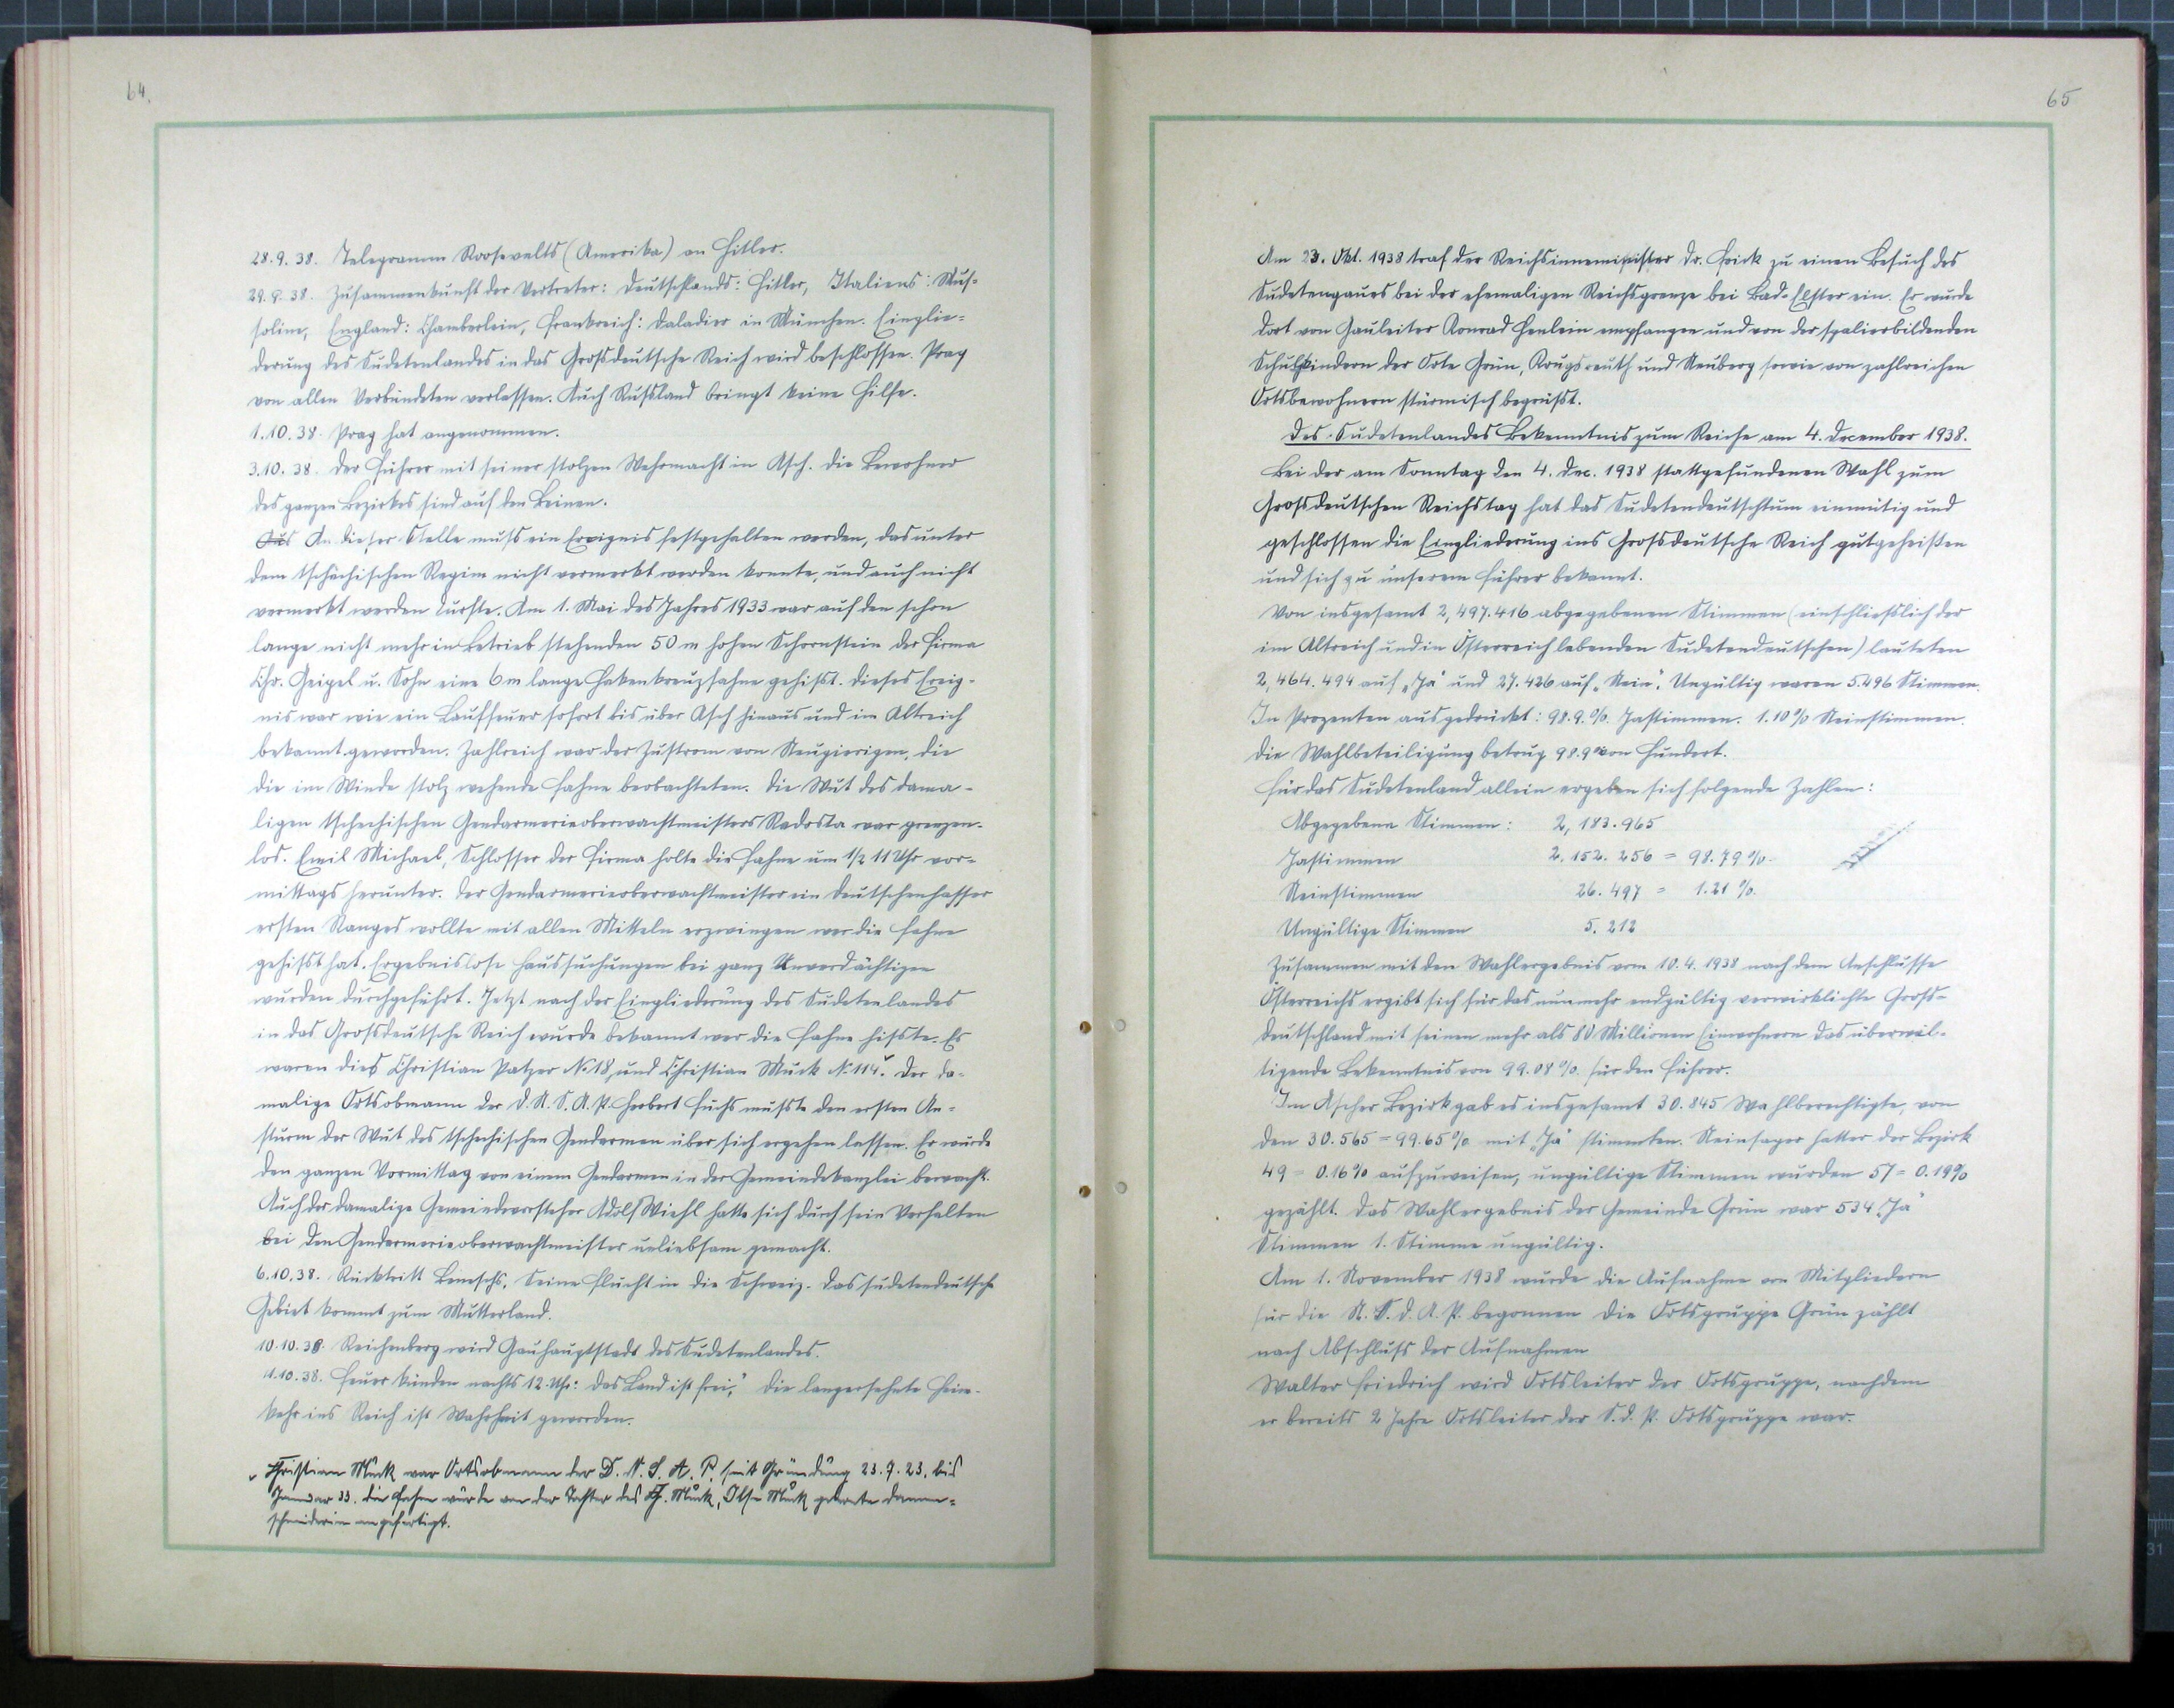 64.
28.9.38. Telegramm Roosevelts (Amerika) an Hitler.
29.9.38. Zusammenkunft der Vertreter: Deutschlands: Hitler, Italiens: Mus-
soline, England: Chamberlein, Frankreich: Daladier in München. Einglie-
derung des Sudetenlandes in das Grossdeutsche Reich wird beschlossen. Prag
von allen Verbündeten verlassen. Auch Russland bringt keine Hilfe.
1.10.38. Prag hat angenommen.
3.10.38. Der Führer mit seiner stolzen Wehrmacht in Asch. Die Bewohner
des ganzen Bezirkes sind auf den Beinen.
Aus An dieser Stelle muss ein Ereignis festgehalten werden, das unter
dem tschechischen Regim nicht vermerkt werden konnte, und auch nicht
vermerkt werden durfte. Am 1. Mai des Jahres 1933 war auf den schon
lange nicht mehr in Betrieb stehenden 50 m hohen Schornstein der Firma
Chr. Geipel u. Sohn eine 6 m lange Hakenkreuzfahne gehisst. Dieses Ereig-
nis war wie ein Lauffeuer sofort bis über Asch hinaus und im Altreich
bekannt geworden. Zahlreich war der Zustrom von Neugierigen, die
die im Winde stolz wehende Fahne beobachteten. Die Wut des dama-
ligen tschechischen Gendarmerieoberwachtmeisters Radosta war grenzen-
los. Emil Michael, Schlosser der Firma holte die Fahne um 1/2 11 Uhr vor-
mittags herunter. Der Gendarmerieoberwachtmeister ein Deutschenhasser
ersten Ranges wollte mit allen Mitteln erzwingen wer die Fahne
gehisst hat. Ergebnislose Haussuchungen bei ganz Unverdächtigen
wurden durchgeführt. Jetzt nach der Eingliederung des Sudetenlandes
in das Grossdeutsche Reich wurde bekannt wer die Fahne hisste. Es
waren dies Christian Patzer No 18, und Christian Muck No 114. Der da-
malige Ortsobmann der D.N.S.A.P. Herbert Fuchs musste den ersten An-
sturm der Wut des tschechischen Gendarmen über sich ergehen lassen. Er wurde
den ganzen Vormittag von einem Gendarmen in der Gemeindekanzlei bewacht.
Auch der damalige Gemeindevorsteher Adolf Wiehl hatte sich durch sein Verhalten
bei den Gendarmerieoberwachtmeister unliebsam gemacht.
6.10.38. Rücktritt Beneschs. Seine Flucht in die Schweiz. Das sudetendeutsche
Gebiet kommt zum Mutterland.
10.10.38. Reichenberg wird Gauhauptstadt des Sudetenlandes.
11.10.38. Feuer künden nachts 12 Uhr: Das Land ist frei," die langersehnte Heim-
kehr ins Reich ist Wahrheit geworden.
Christian Muck war Ortsobmann der D.N.S.A.P. seit Gründung 23.9.23. bis
Januar 33. Die Fahne wurde von der Tochter des Ch. Muck, Else Muck gelernte Damen-
schneiderin angefertigt.
65
Am 23. Okt. 1938 traf der Reichsinneminister Dr. Frick zu einen Besuch des
Sudetengaues bei der ehemaligen Reichsgrenze bei Bad-Elster ein. Er wurde
dort von Gauleiter Konrad Henlein empfangen und von der spalierbildenden
Schulkindern der Orte Grün, Krugsreuth und Neuberg sowie von zahlreichen
Ortsbewohnern stürmisch begrüsst.
Des Sudetenlandes Bekenntnis zum Reiche am 4. December 1938.
Bei der am Sonntag den 4. Dec. 1938 stattgefundenen Wahl zum
Grossdeutschen Reichstag hat das Sudetendeutschtum einmütig und
geschlossen die Eingliederung ins Grossdeutsche Reich gutgeheißen
und sich zu unserem Führer bekannt.
Von insgesamt 2,497.416 abgegebenen Stimmen (einschliesslich der
im Altreich und in Österreich lebenden Sudetendeutschen) lauteten
2,464.494 auf „Ja" und 27.426 auf „Nein". Ungültig waren 5.496 Stimmen.
In Prozenten ausgedrückt: 98.9.%. Jastimmen. 1.10% Neinstimmen.
Die Wahlbeteiligung betrug 98.9 von Hundert.
Für das Sudetenland allein ergeben sich folgende Zahlen:
Abgegebene Stimmen: 2,183.965
Jastimmen 2.152.256 = 98.79%.
Neinstimmen 26.497 = 1.21%.
Ungültige Stimmen 5.212
Zusammen mit den Wahlergebnis vom 10.4.1938 nach dem Anschlusse
Österreichs ergibt sich für das nunmehr endgültig verwirklichte Gross-
deutschland mit seinen mehr als 80 Millionen Einwohnern das überwäl-
tigende Bekenntnis von 99.08%. für den Führer.
Im Ascher Bezirk gab es insgesamt 30.845 Wahlberechtigte, von
den 30.565 = 99.65% mit „Ja" stimmten. Neinsager hatte der Bezirk
49 = 0.16% aufzuweisen, ungültige Stimmen wurden 57 = 0.19%
gezählt. Das Wahlergebnis der Gemeinde Grün war 534 „Ja"
Stimmen 1. Stimme ungültig.
Am 1. November 1938 wurde die Aufnahme von Mitgliedern
für die N.S.D.A.P. begonnen die Ortsgruppe Grün zählt
nach Abschluss der Aufnahmen
Walter Friedrich wird Ortsleiter der Ortsgruppe, nachdem
er bereits 2 Jahre Ortsleiter der S.d.P. Ortsgruppe war.